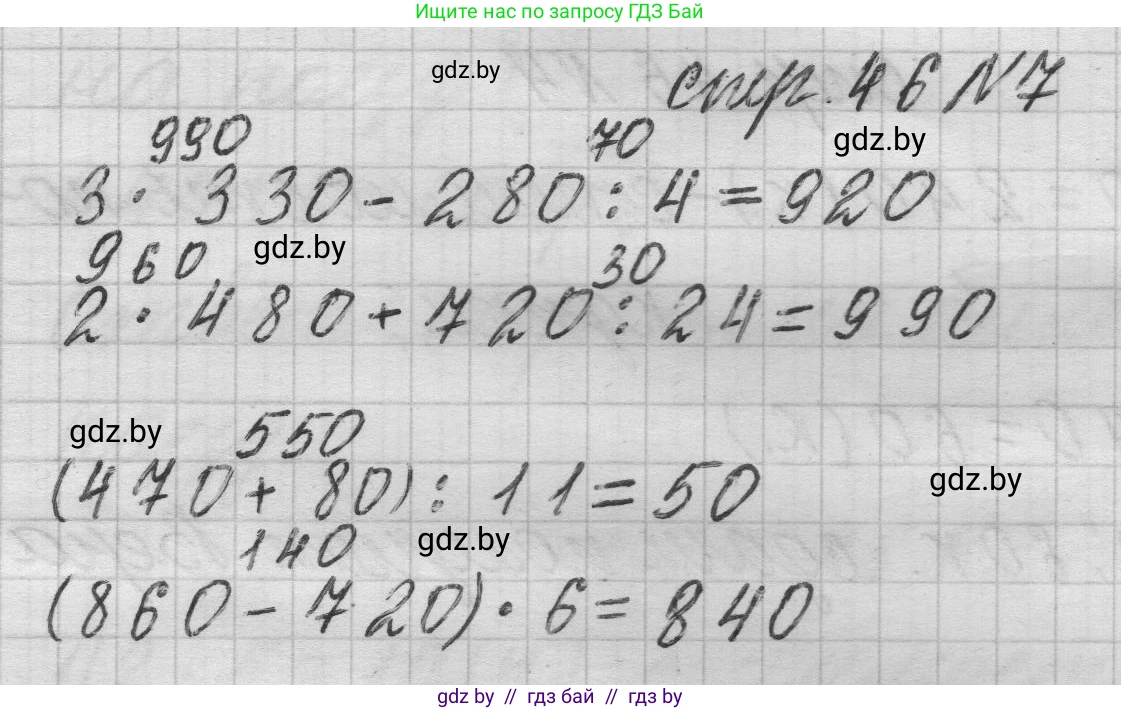 Ищите нас по запросу ГДЗ Бай
gdz.by
стр. 46 N7
990 70 gdz.by
3 · 330 - 280 : 4 = 920
960 gdz.by 30
2 · 480 + 720 : 24 = 990
gdz.by 550
(470 + 80) : 11 = 50 gdz.by
140 gdz.by
(860 - 720) · 6 = 840
gdz by // гдз бай // gdz by